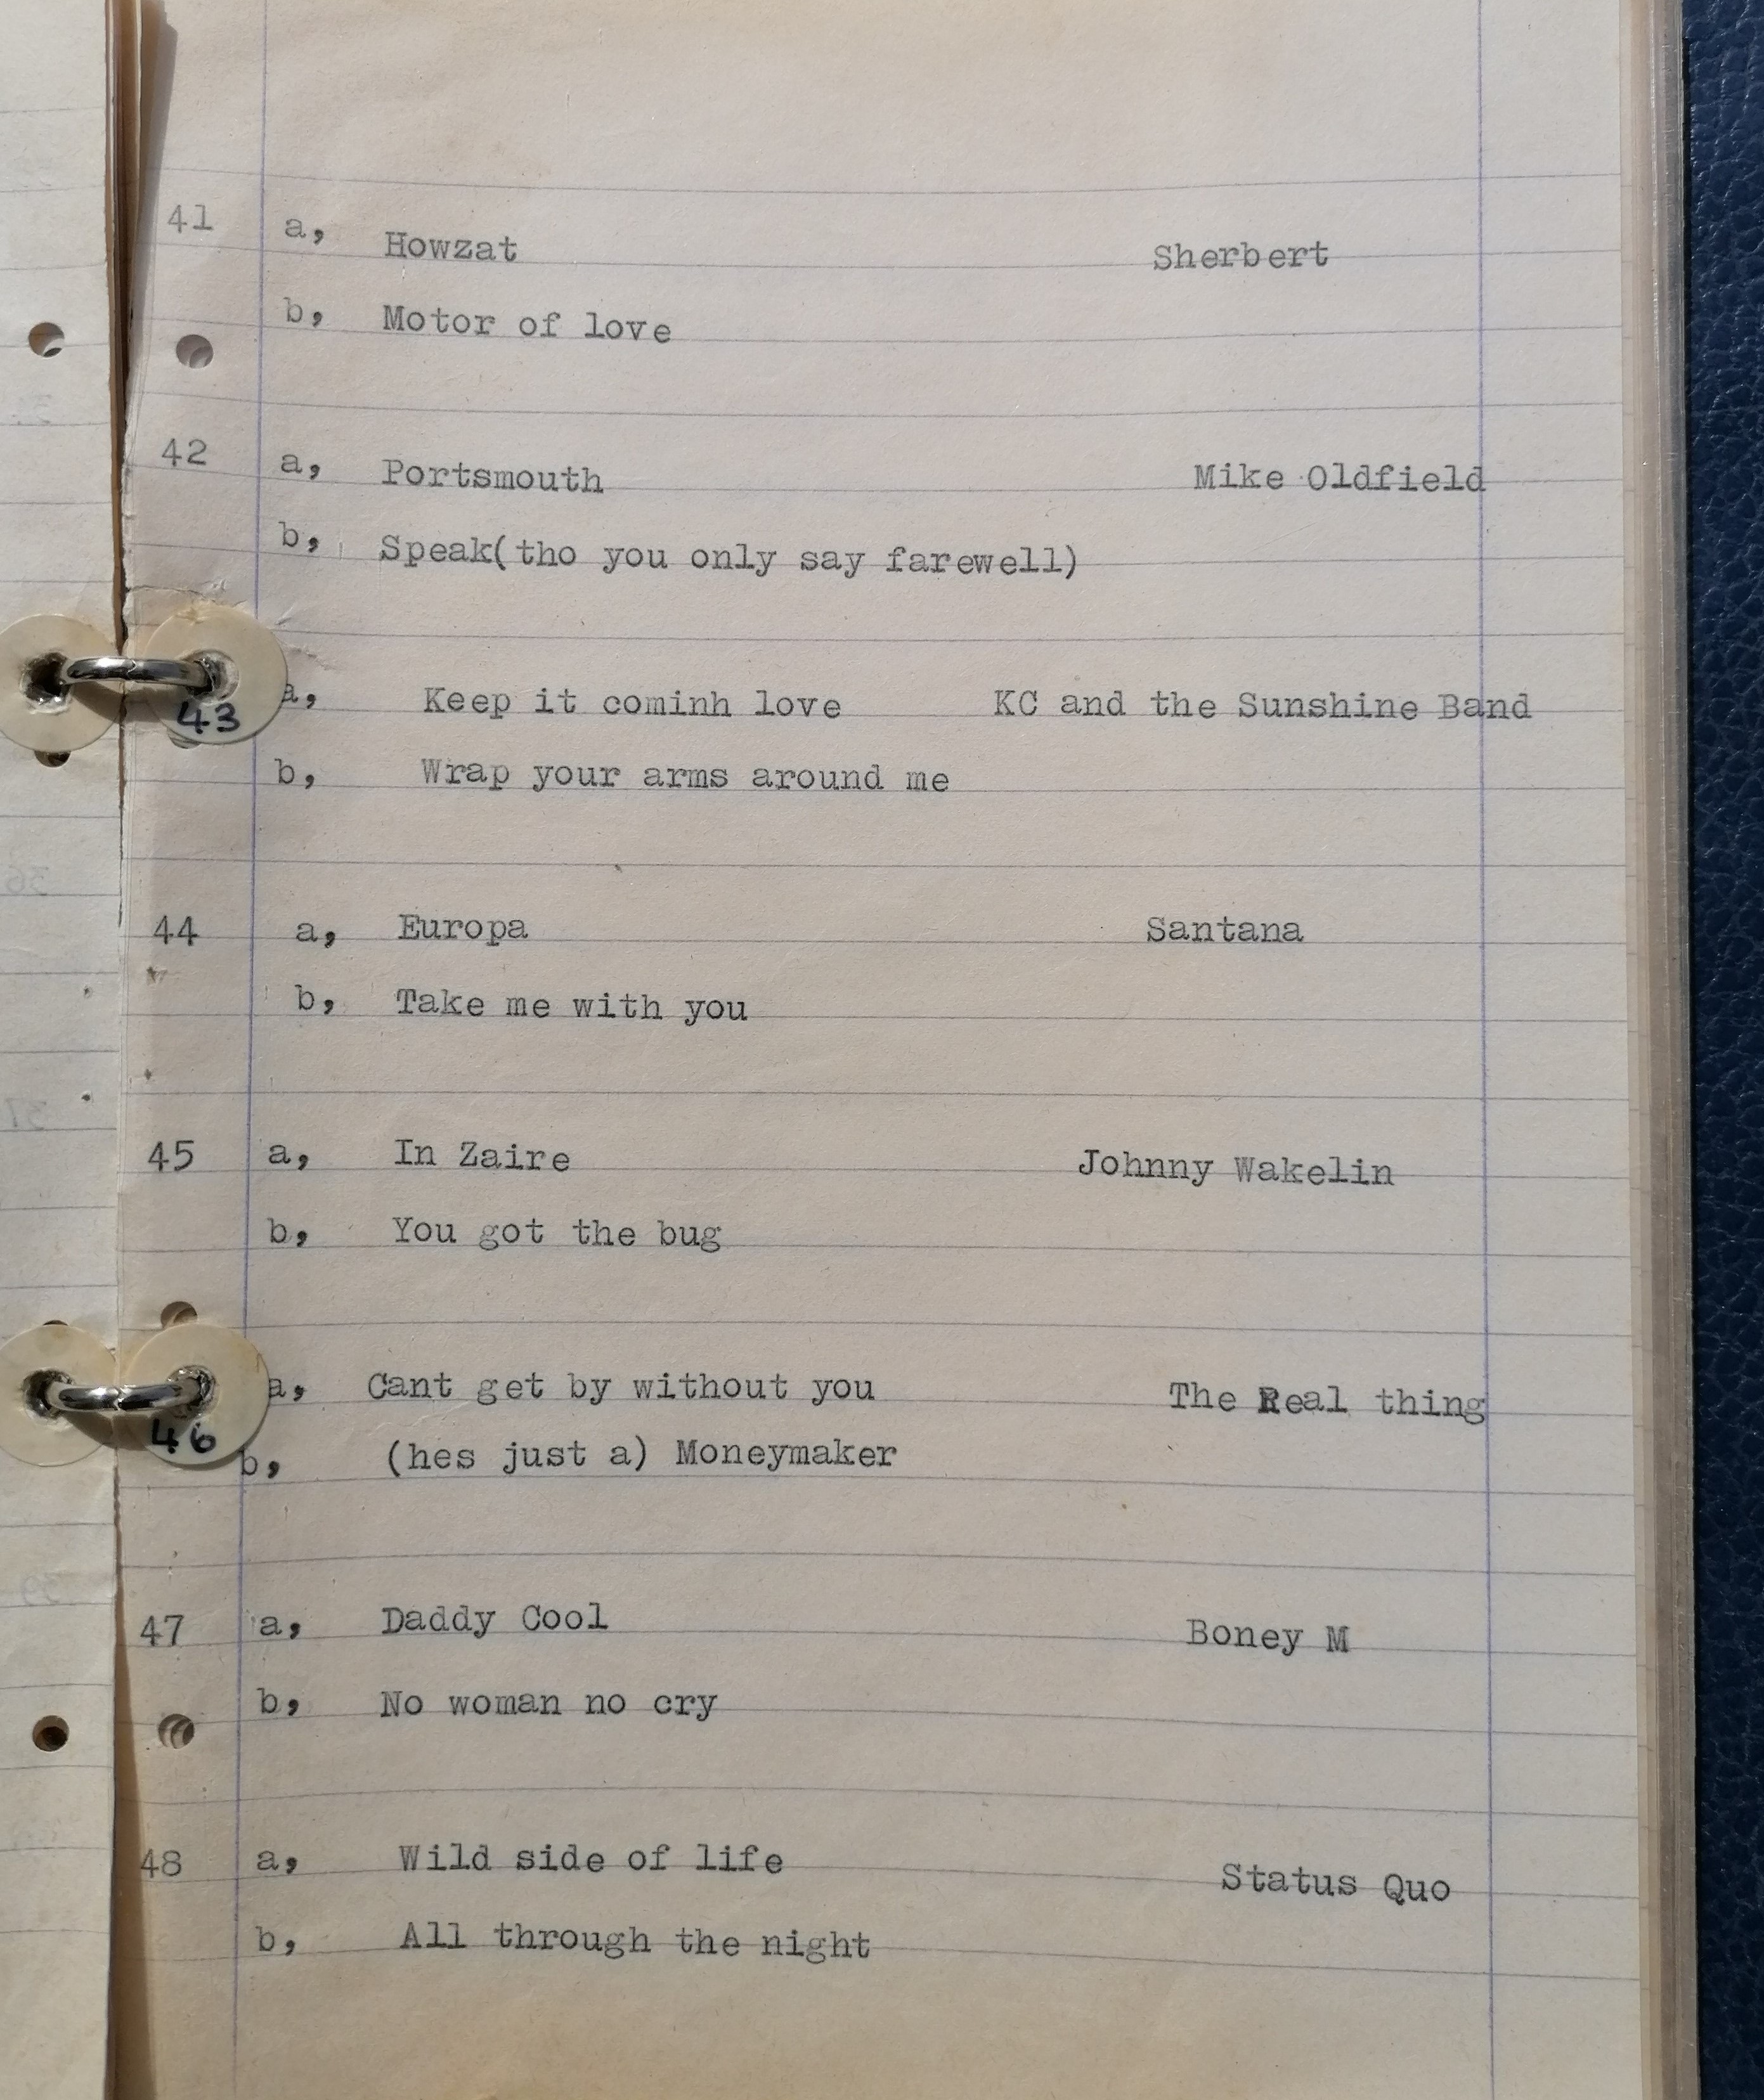 41 a, Howzat Sherbert
b, Motor of love
42 a, Portsmouth Mike Oldfield
b, Speak(tho you only say farewell)
43 a, Keep it cominh love KC and the Sunshine Band
b, Wrap your arms around me
44 a, Europa Santana
b, Take me with you
45 a, In Zaire Johnny Wakelin
b, You got the bug
46 a, Cant get by without you The Real thing
b, (hes just a) Moneymaker
47 a, Daddy Cool Boney M
b, No woman no cry
48 a, Wild side of life Status Quo
b, All through the night